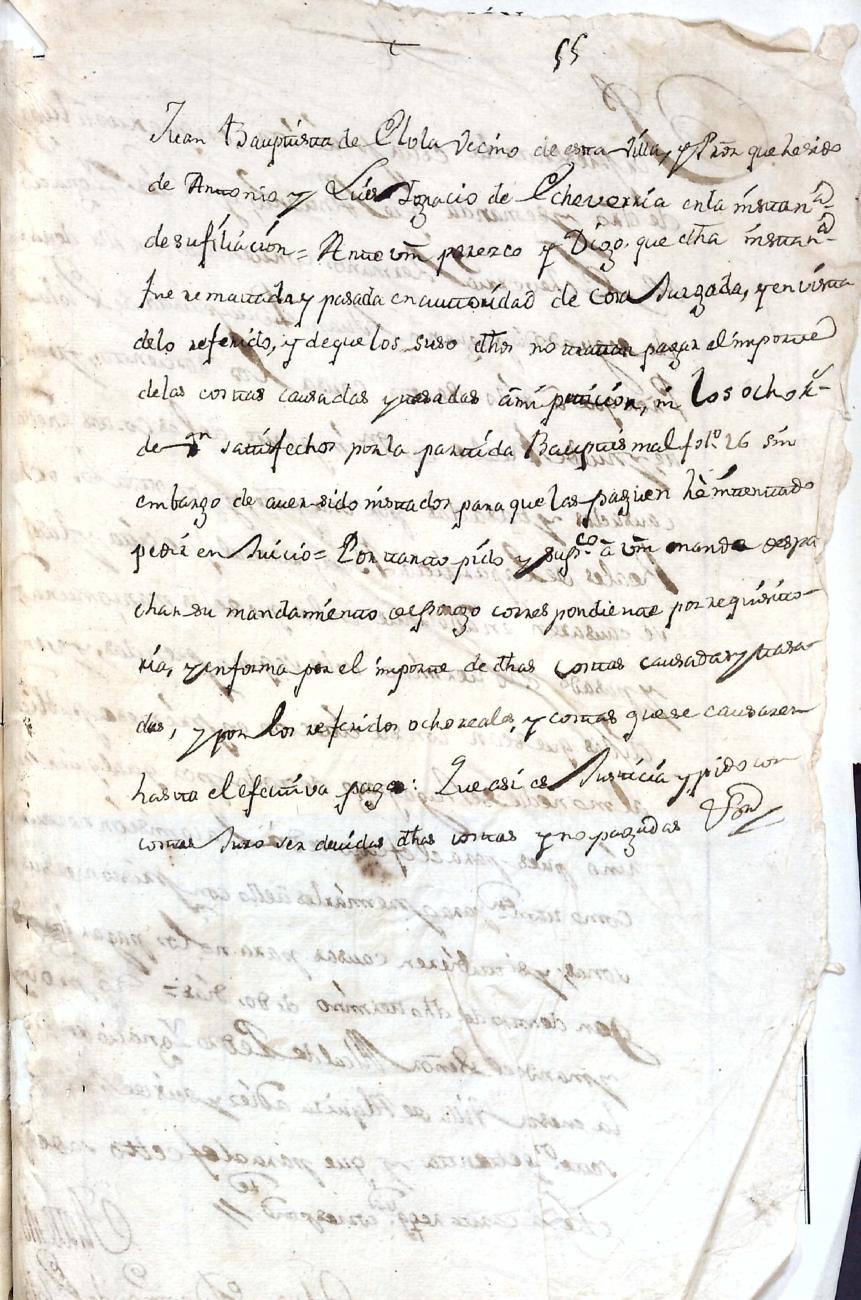 55
Juan Bauptista de Elola Vecino de esta Villa, y Prõr que he sido
de Antonio y Luis Ignacio de Echeverria en la instan.ª
de su filiación = Ante vm parezco y Digo, que dha instan.ª
fue rematada y pasada en auttoridad de Cosa Juzgada, y en vista
de lo referido, y de que los suso dhos no trattan pagar el importe
de las costas causadas y tasadas â mi petición, ni los ocho r.ˢ
de satisfechos por la partida Bauptismal fol.º 26 sin
embargo de aver sido instados para que las paguen hê intentado
pedir en Juicio = Por tanto pido y sup.co â vm mande despa
char su mandamiento correspondiente por requisito-
ria, y en forma por el importe de dhas costas causadas y tasa-
das, y por los referidos ocho reales, y costas que se causaren
hasta el efectiva paga: Que asi es Justicia y pido con
costas Juro ser devidas dhas costas y no pagadas